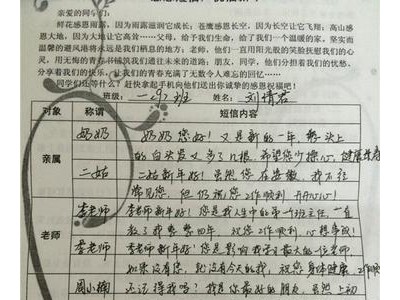 亲爱的同学们:
鲜花感恩雨露,因为雨露滋润它成长;苍鹰感恩长空,因为长空让它飞翔;高山感
恩大地,因为大地让它高耸……父母,给予我们生命,给了我们一个温暖的家,坚实而
温馨的避风港将永远是我们栖息的地方;老师,他们一直用阳光般的笑脸抚慰我们的心
灵,用无悔的青春书
友,同学,他们分担着我们的忧愁,
分享着我们的快乐,让我们的青春充满了无数令人难忘的回忆……
同学们还等什么?赶快拿起手机向他们送出你诚挚的感恩祝福吧!
班级: 姓名:
对象 称谓 短信内容
亲属 奶奶 奶奶您好!又是新的一年,
的白头发又多了几根,希望您少操心,健康
二姑 二姑新年好!虽然您在安徽,我不
常见您,但仍祝您工作顺利 开开心心!
老师 李老师 李老师新年好!您是我人生中的第一班主任,一直
教了我整整四年,祝您工作顺利,心想事成!
李老师 李老师新年好!您是影响我 最大的一位老师,
如果没有您,就没有今天的我,祝您身体健康,工作
周小楠 还记得我吗?我是你最好的朋友,虽然上初